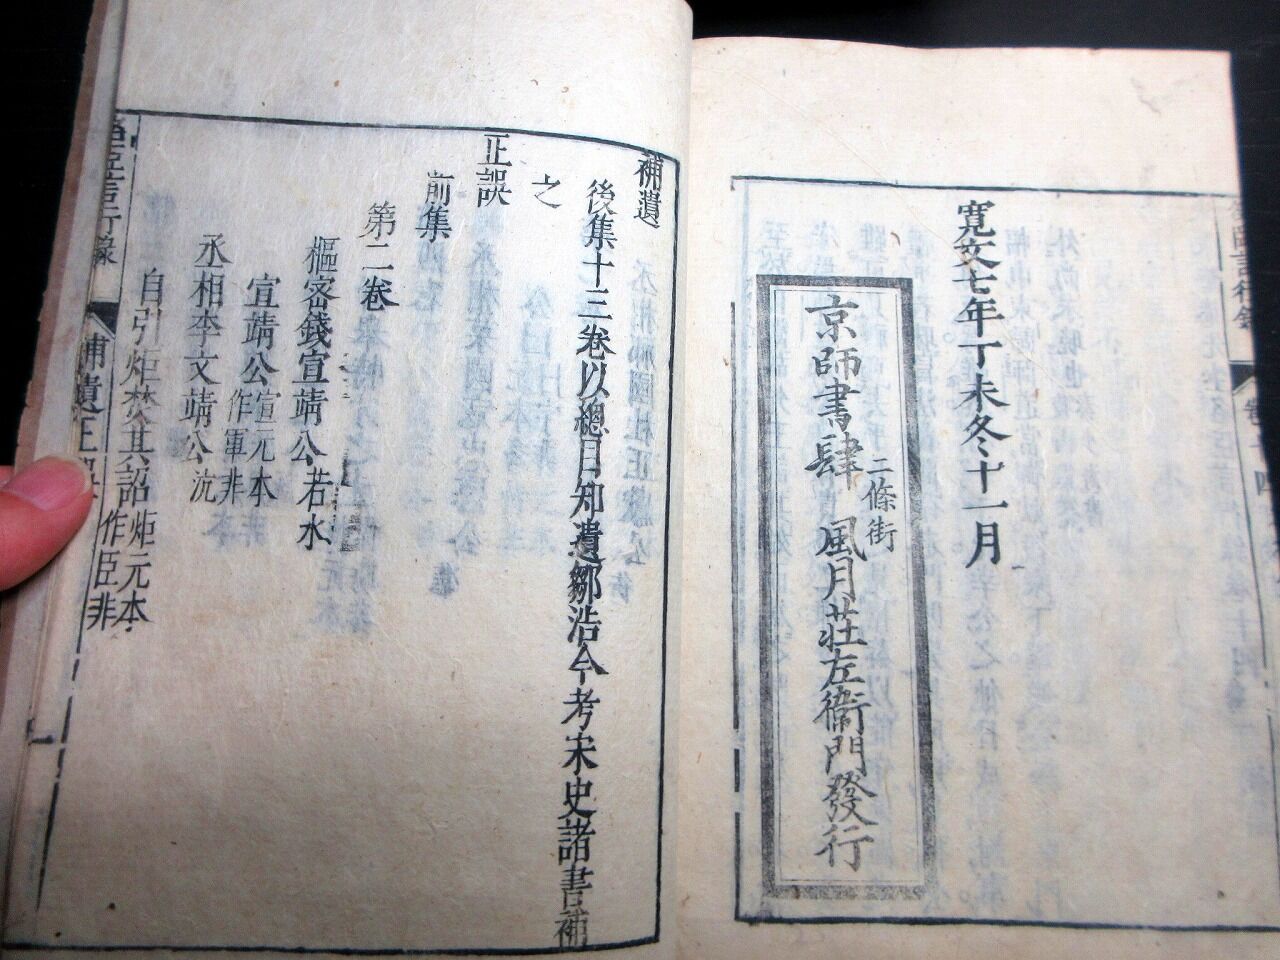 寛文七年丁未冬十一月
京師書肆
二條街
風月莊左衞門發行
補遺
後集十三卷以總目知遺鄒浩今考宋史諸書補
之
正誤
前集
第二卷
樞密錢宣靖公若水
宣靖公宣元本
作軍非
丞相李文靖公沆
自引炬焚其詔炬元本
作臣非
補遺正誤